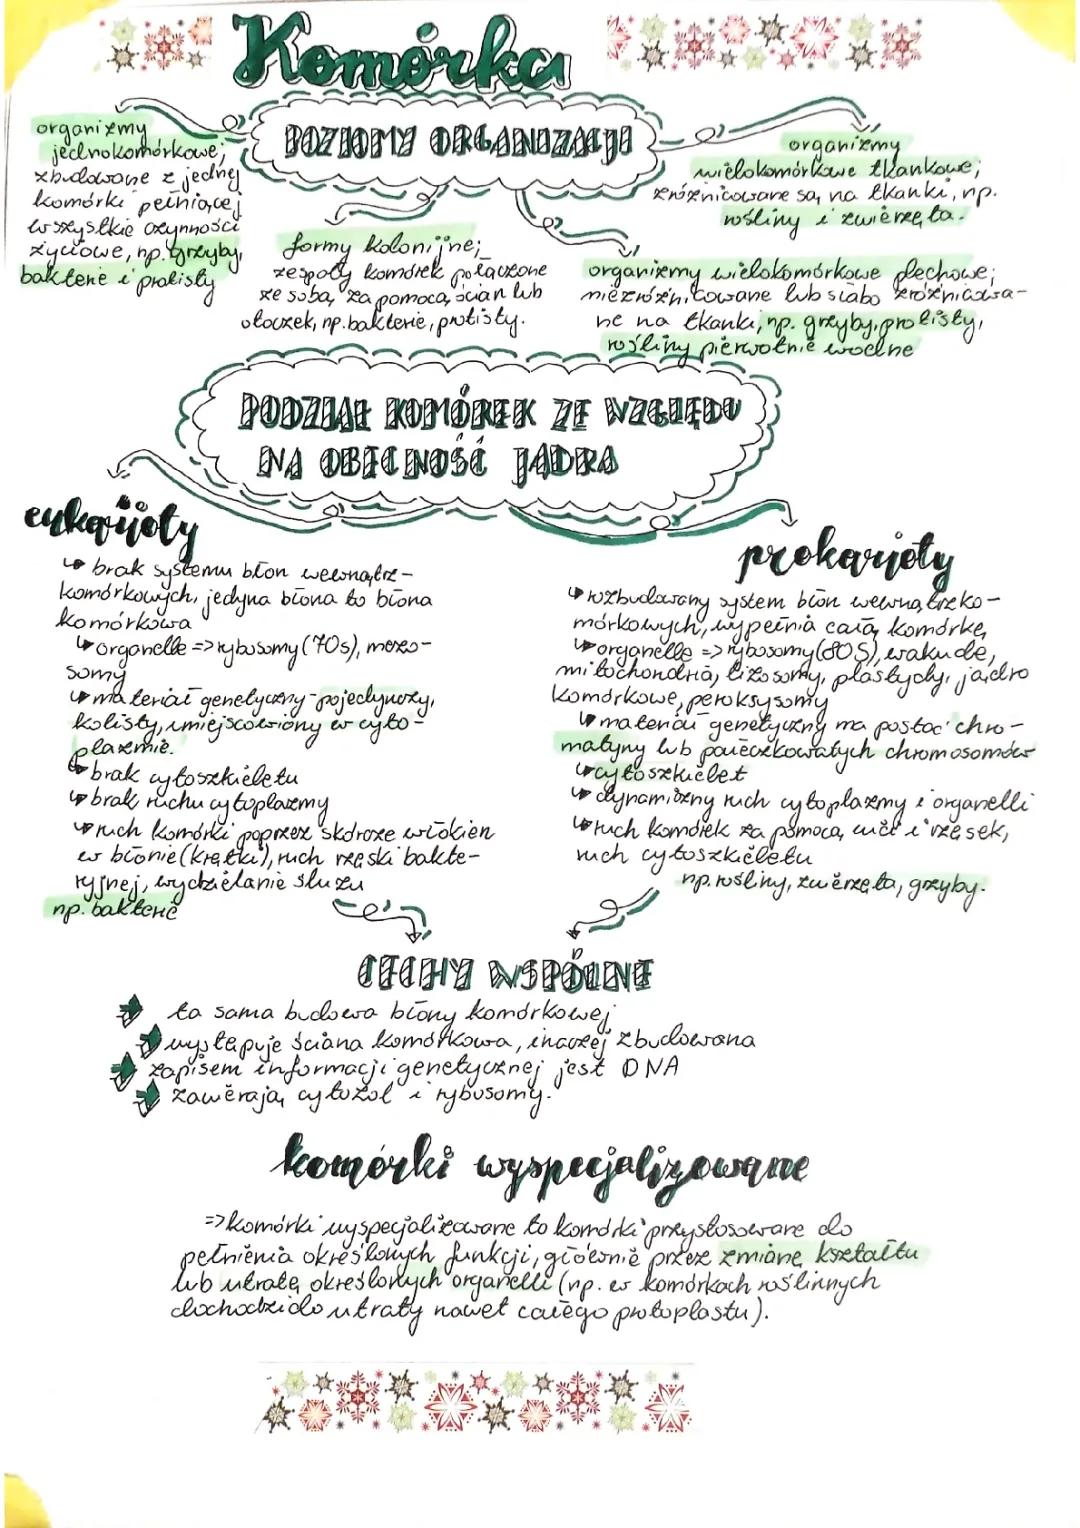 Komórka
POZIOMY ORGANIZACJI
organizmy
jednokomórkowe;
zbudowane z jednej
komórki pełniącej
wszystkie czynności
życiowe, np. grzyby,
bakterie i protisty
formy kolonijne;
zespoły komórek połączone
ze sobą za pomocą ścian lub
otoczek, np. bakterie, protisty.
organizmy
wielokomórkowe tkankowe;
zróżnicowane są na tkanki, np.
rośliny i zwierzęta.
organizmy wielokomórkowe plechowe;
niezróżnicowane lub słabo zróżnicowa-
ne na tkanki, np. grzyby, protisty,
rośliny pierwotnie wodne
PODZIAŁ KOMÓREK ZE WZGLĘDU
NA OBECNOŚĆ JĄDRA
eukarioty
↳ brak systemu błon wewnątrz-
komórkowych, jedyna błona to błona
komórkowa
↳ organelle => rybosomy (70s), mezo-
somy
↳ materiał genetyczny - pojedynczy,
kolisty, umiejscowiony w cyto-
plazmie.
↳ brak cytoszkieletu
↳ brak ruchu cytoplazmy
↳ ruch komórki poprzez skórcze włókien
w błonie (krętki), ruch rzęski bakte-
ryjnej, wydzielanie śluzu
np. bakterie
prokarioty
↳ rozbudowany system błon wewnątrzko-
mórkowych, wypełnia całą komórkę
↳ organelle => rybosomy (80S), wakuole,
mitochondria, lizosomy, plastydy, jądro
komórkowe, peroksysomy
↳ materiał genetyczny ma postać chro-
matyny lub pałeczkowatych chromosomów
↳ cytoszkielet
↳ dynamiczny ruch cytoplazmy i organelli
↳ ruch komórek za pomocą wici i rzęsek,
ruch cytoszkieletu
np. rośliny, zwierzęta, grzyby.
CECHY WSPÓLNE
ta sama budowa błony komórkowej
występuje ściana komórkowa, inaczej zbudowana
zapisem informacji genetycznej jest DNA
zawierają cytozol i rybosomy.
komórki wyspecjalizowane
=> komórki wyspecjalizowane to komórki przystosowane do
pełnienia określonych funkcji, głównie przez zmianę kształtu
lub utratę określonych organelli (np. w komórkach roślinnych
dochodzi do utraty nawet całego protoplastu).